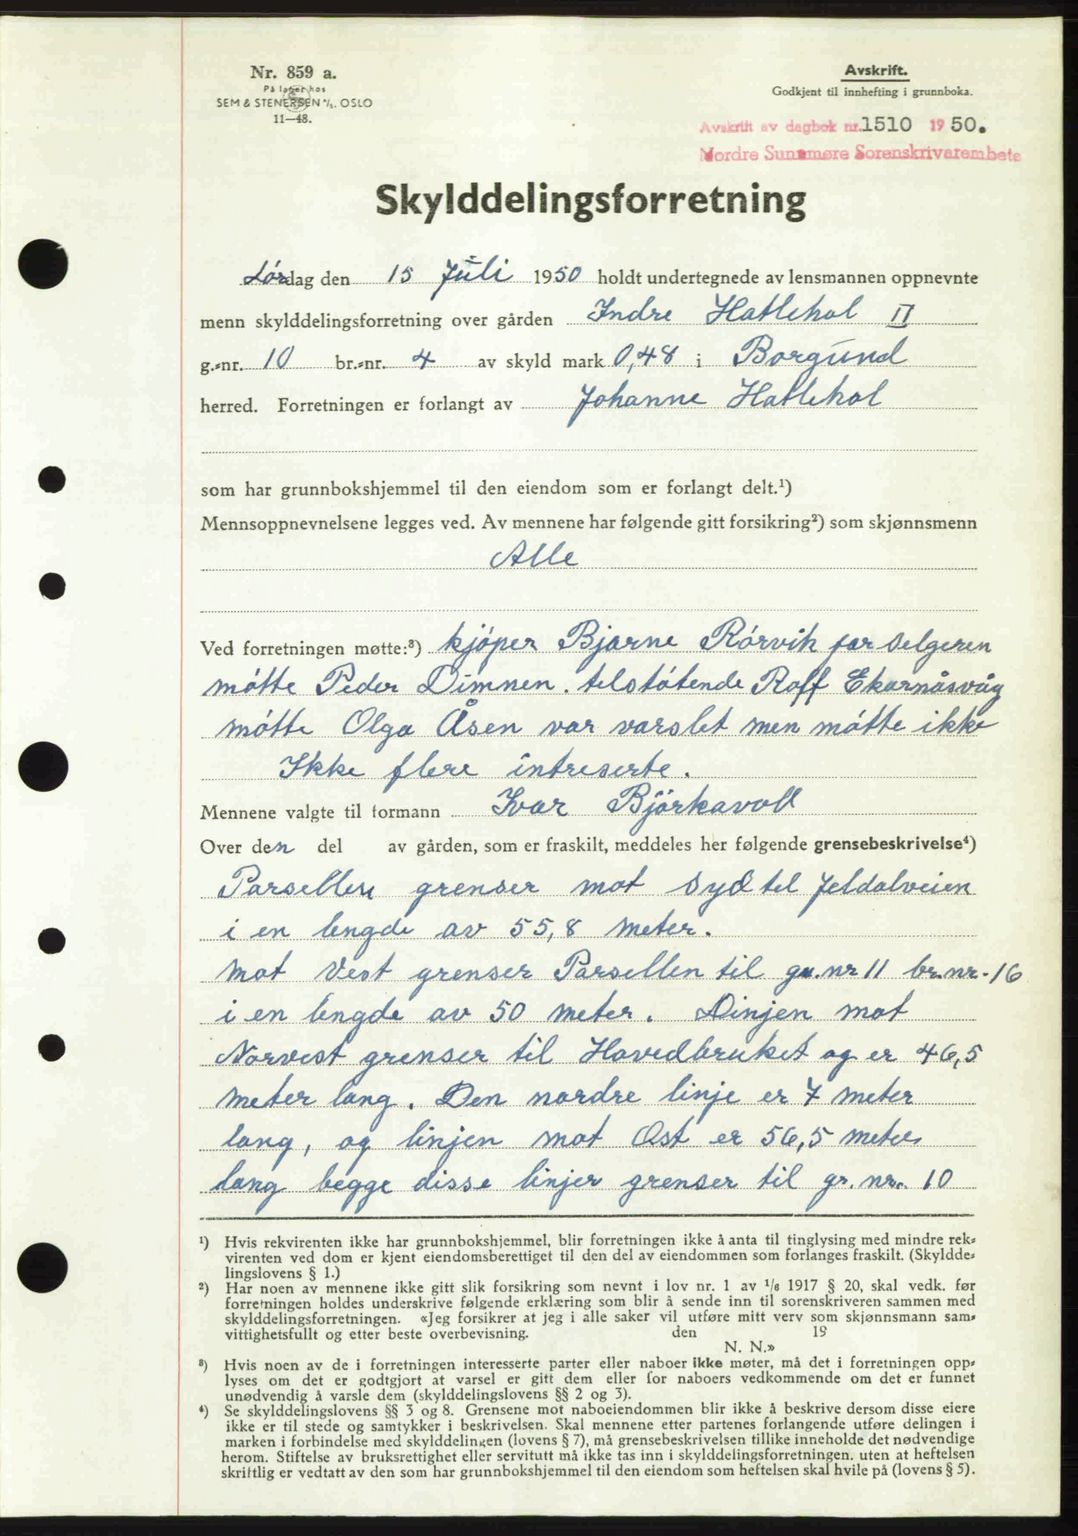 Nr. 859 a.
På lager hos
SEM & STENERSEN A/S. OSLO
11—48.
Avskrift.
Godkjent til innhefting i grunnboka.
Avskrift av dagbok nr. 1510 1950.
Nordre Sunnmøre Sorenskrivarembete
Skylddelingsforretning
Lørdag den 15 Juli 1950 holdt undertegnede av lensmannen oppnevnte
menn skylddelingsforretning over gården Indre Hatlehol II
g.-nr. 10 br.-nr. 4 av skyld mark 0,48 i Borgund
herred. Forretningen er forlangt av Johanne Hatlehol
som har grunnbokshjemmel til den eiendom som er forlangt delt.¹)
Mennsoppnevnelsene legges ved. Av mennene har følgende gitt forsikring²) som skjønnsmenn
Alle
Ved forretningen møtte:³) kjóper Bjarne Rórvik for selgeren
mótte Peder Dimnen. telstótende Rolf Ekornåsvåg
mótte Olga Åsen var varslet men mótte ikke
Ikke flere intreserte.
Mennene valgte til formann Ivar Björkavoll
Over den del av gården, som er fraskilt, meddeles her følgende grensebeskrivelse⁴)
Parsellen grenser mot syd til Jeldalveien
i en lengde av 55,8 meter.
mot Vest grenser Parsellen til gn.nr 11 br.nr. 16
i en lengde av 50 meter. Linjen mot
Norvest grenser til Hovedbruket og er 46,5
meter lang. Den nordre linje er 7 meter
lang, og linjen mot Øst er 56,5 meter
lang begge disse linjer grenser til gr. nr. 10
¹) Hvis rekvirenten ikke har grunnbokshjemmel, blir forretningen ikke å anta til tinglysing med mindre rek-
virenten ved dom er kjent eiendomsberettiget til den del av eiendommen som forlanges fraskilt. (Skyldde-
lingslovens § 1.)
²) Har noen av mennene ikke gitt slik forsikring som nevnt i lov nr. 1 av 1/6 1917 § 20, skal vedk. før
forretningen holdes underskrive følgende erklæring som blir å sende inn til sorenskriveren sammen med
skylddelingsforretningen. «Jeg forsikrer at jeg i alle saker vil utføre mitt verv som skjønnsmann sam-
vittighetsfullt og etter beste overbevisning. den 19
N. N.»
³) Hvis noen av de i forretningen interesserte parter eller naboer ikke møter, må det i forretningen opp-
lyses om det er godtgjort at varsel er gitt dem eller for naboers vedkommende om det er funnet
unødvendig å varsle dem (skylddelingslovens §§ 2 og 3).
⁴) Se skylddelingslovens §§ 3 og 8. Grensene mot naboeiendommen blir ikke å beskrive dersom disse eiere
ikke er til stede og samtykker i beskrivelsen. Skal mennene etter partenes forlangende utføre delingen i
marken i forbindelse med skylddelingen (lovens § 7), må grensebeskrivelsen tillike inneholde det nødvendige
herom. Stiftelse av bruksrettighet eller servitutt må ikke tas inn i skylddelingsforretningen. uten at heftelsen
skriftlig er vedtatt av den som har grunnbokshjemmel til den eiendom som heftelsen skal hvile på (lovens § 5).